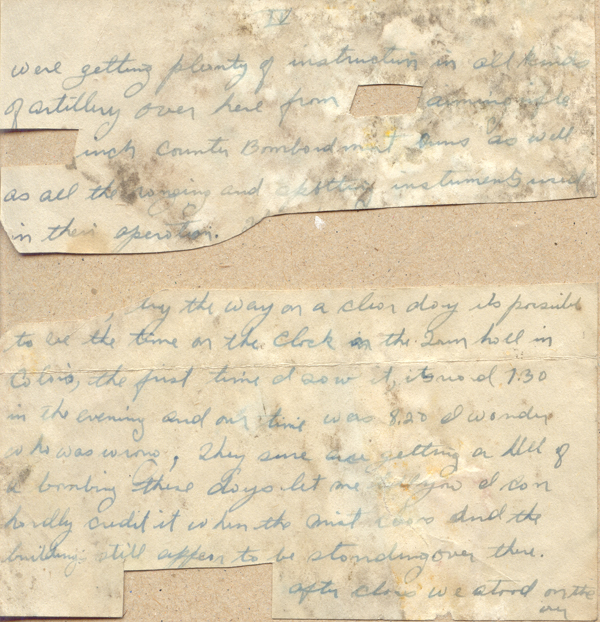 IV
were getting plenty of instruction on all kinds
of artillery over here from
inch Counter Bombardment Guns as well
as all the ranging and spotting instruments used
in their operation.
by the way on a clear day its possible
to be the time on the Clock in the Town hall in
Calais, the first time I saw it, it read 7.30
in the evening and our time was 8.20 I wonder
who was wrong, They sure are getting a Hell of
a bombing these days let me tell you I can
hardly credit it when the mist and the
buildings still appear to be standing over there.
after chow we stood on the